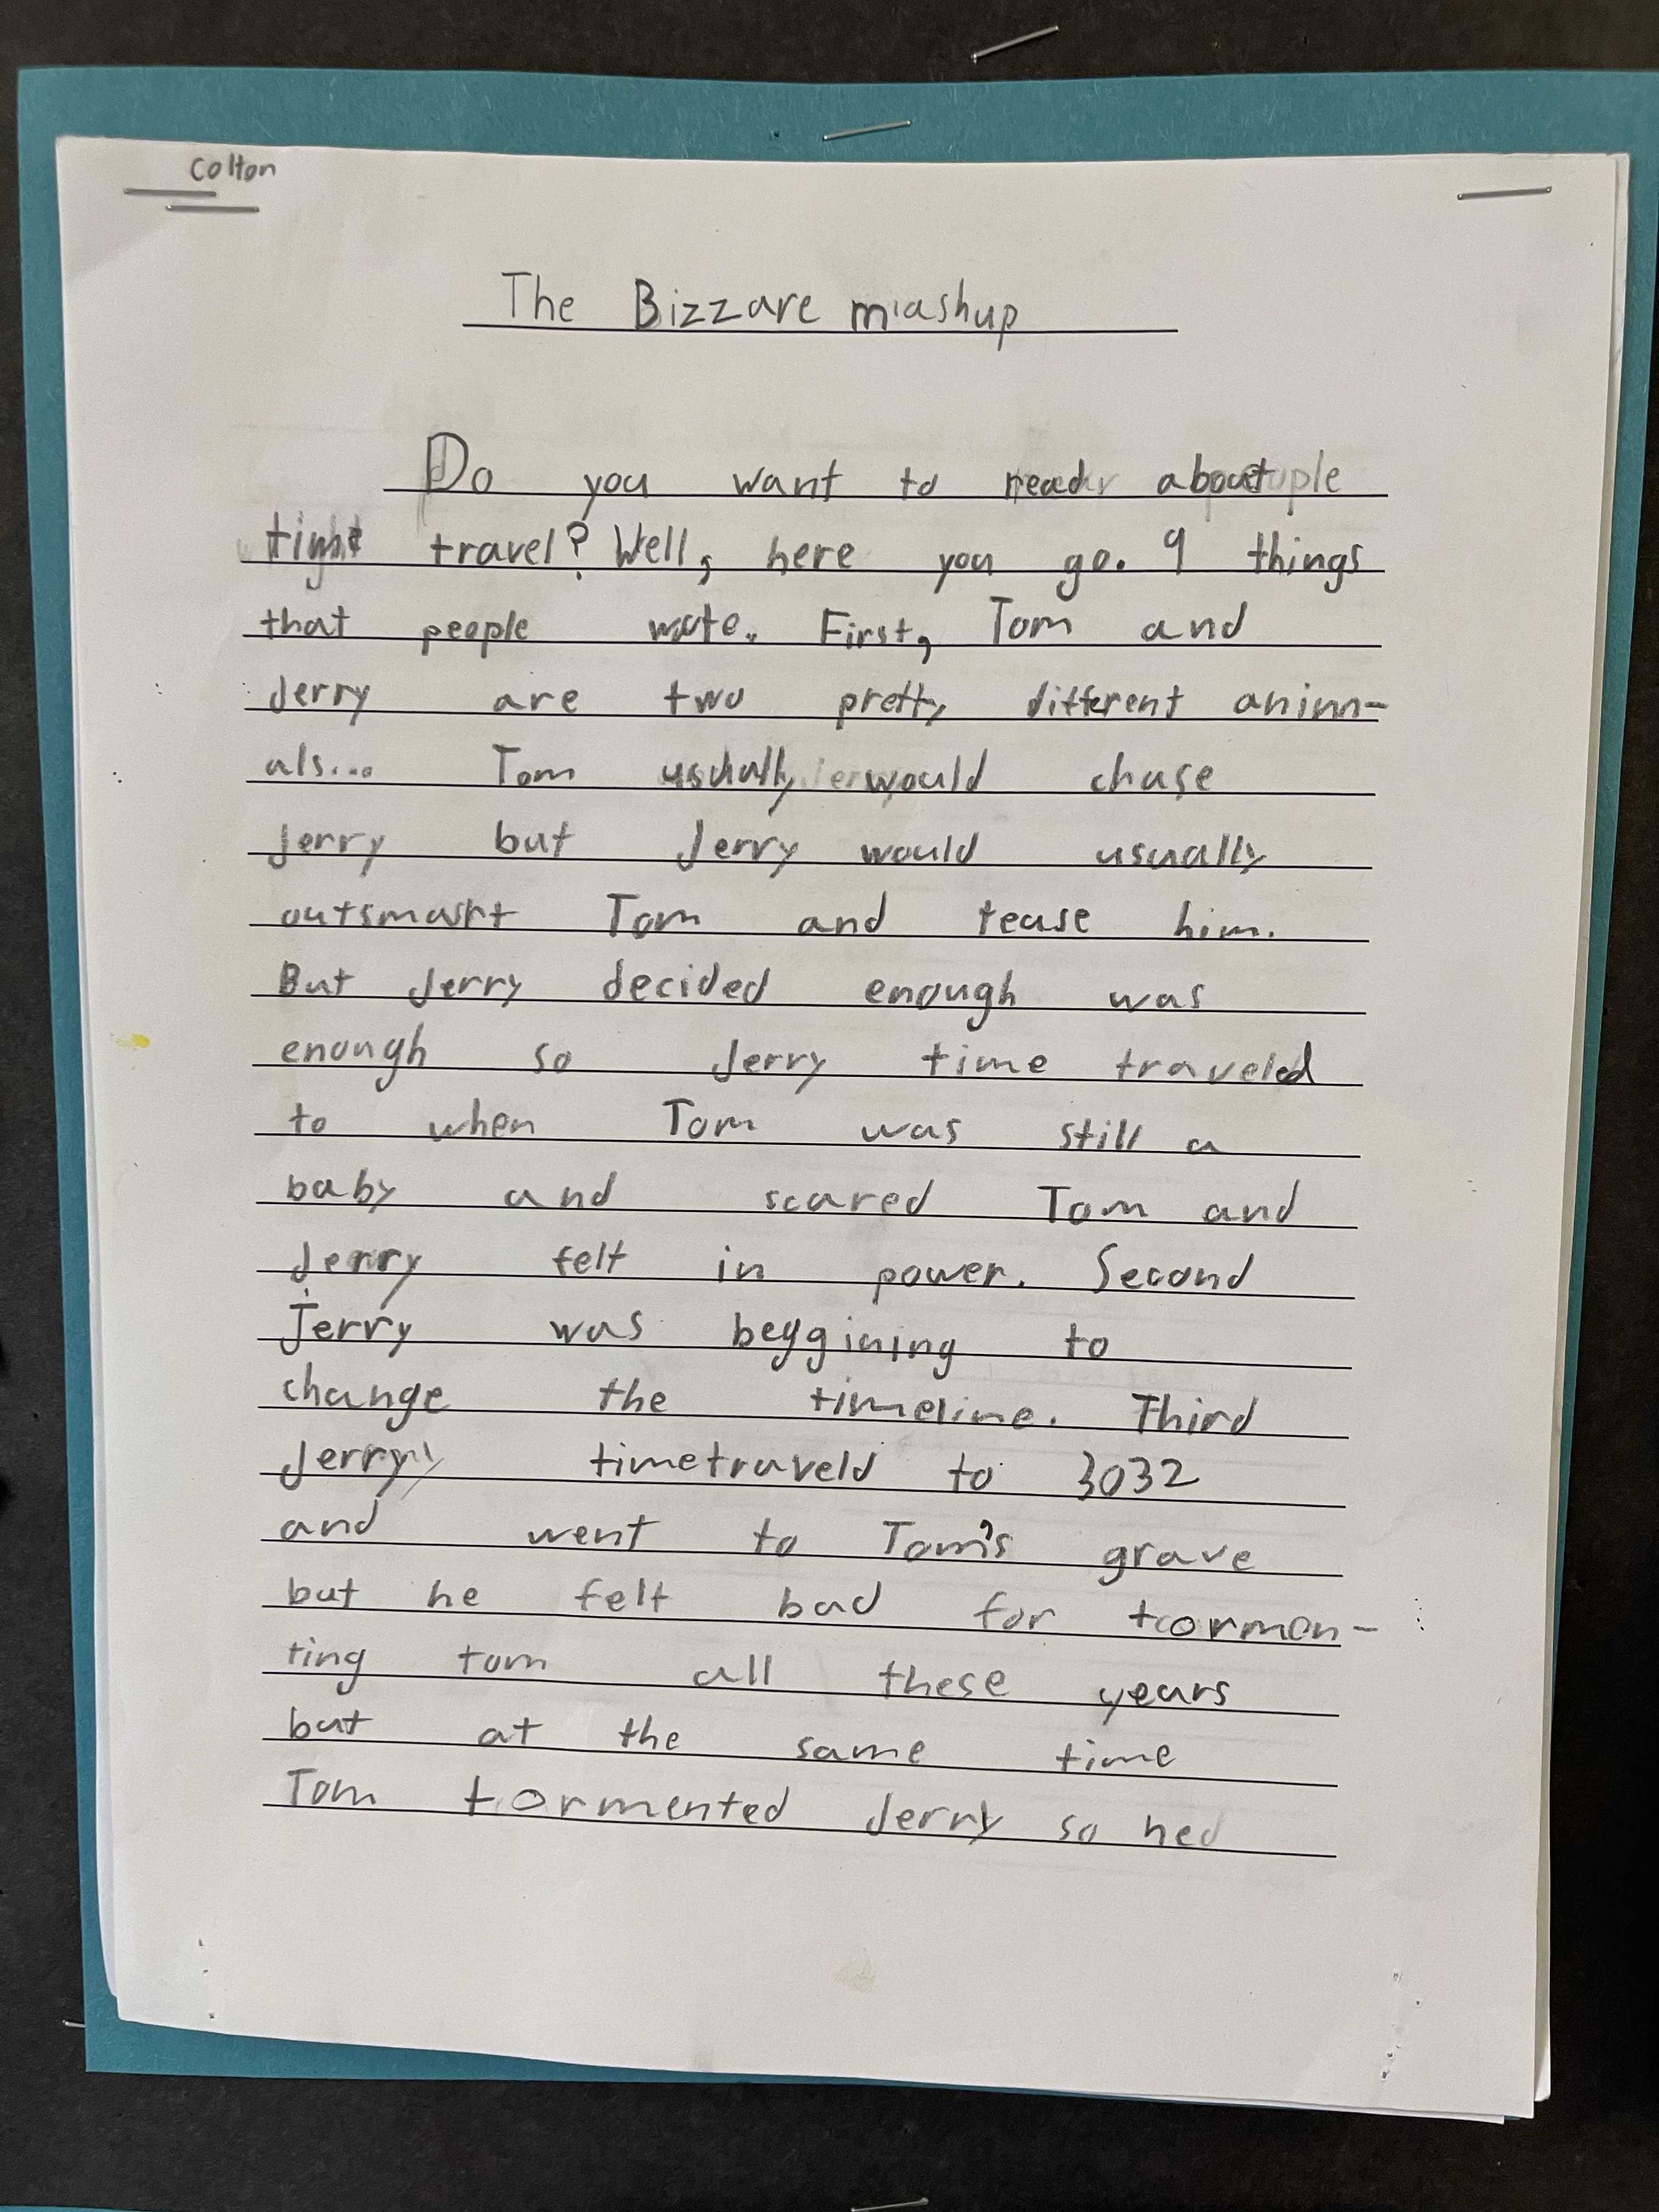 Colton
The Bizzare mashup
Do you want to read about
travel? Well, here you go. 9 things
that people wrote. First, Tom and
Jerry are two pretty different anim-
als... Tom usually would chase
Jerry but Jerry would usually
outsmart Tom and tease him.
But Jerry decided enough was
enough so Jerry time traveled
to when Tom was still a
baby and scared Tom and
Jerry felt in power. Second
Jerry was beggining to
change the timeline. Third
Jerry timetraveld to 3032
and went to Tom's grave
but he felt bad for tormen-
ting tom all these years
but at the same time
Tom tormented Jerry so hed